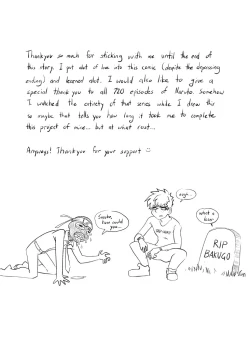 Thankyou so much for sticking with me until the end of
this story. I put alot of love into this comic (despite the depressing
ending) and learned alot. I would also like to give a
special thank you to all 720 episodes of Naruto. Somehow
I watched the entirety of that series while I drew this
so maybe that tells you how long it took me to complete
this project of mine... but at what cost...
Anyways! Thankyou for your support
Sasuke,
how could
you...
ugh
what a
loser
RIP
BAKUGO